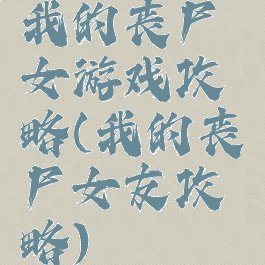 我的丧尸
女游戏攻
略(我的丧
尸女友攻
略)